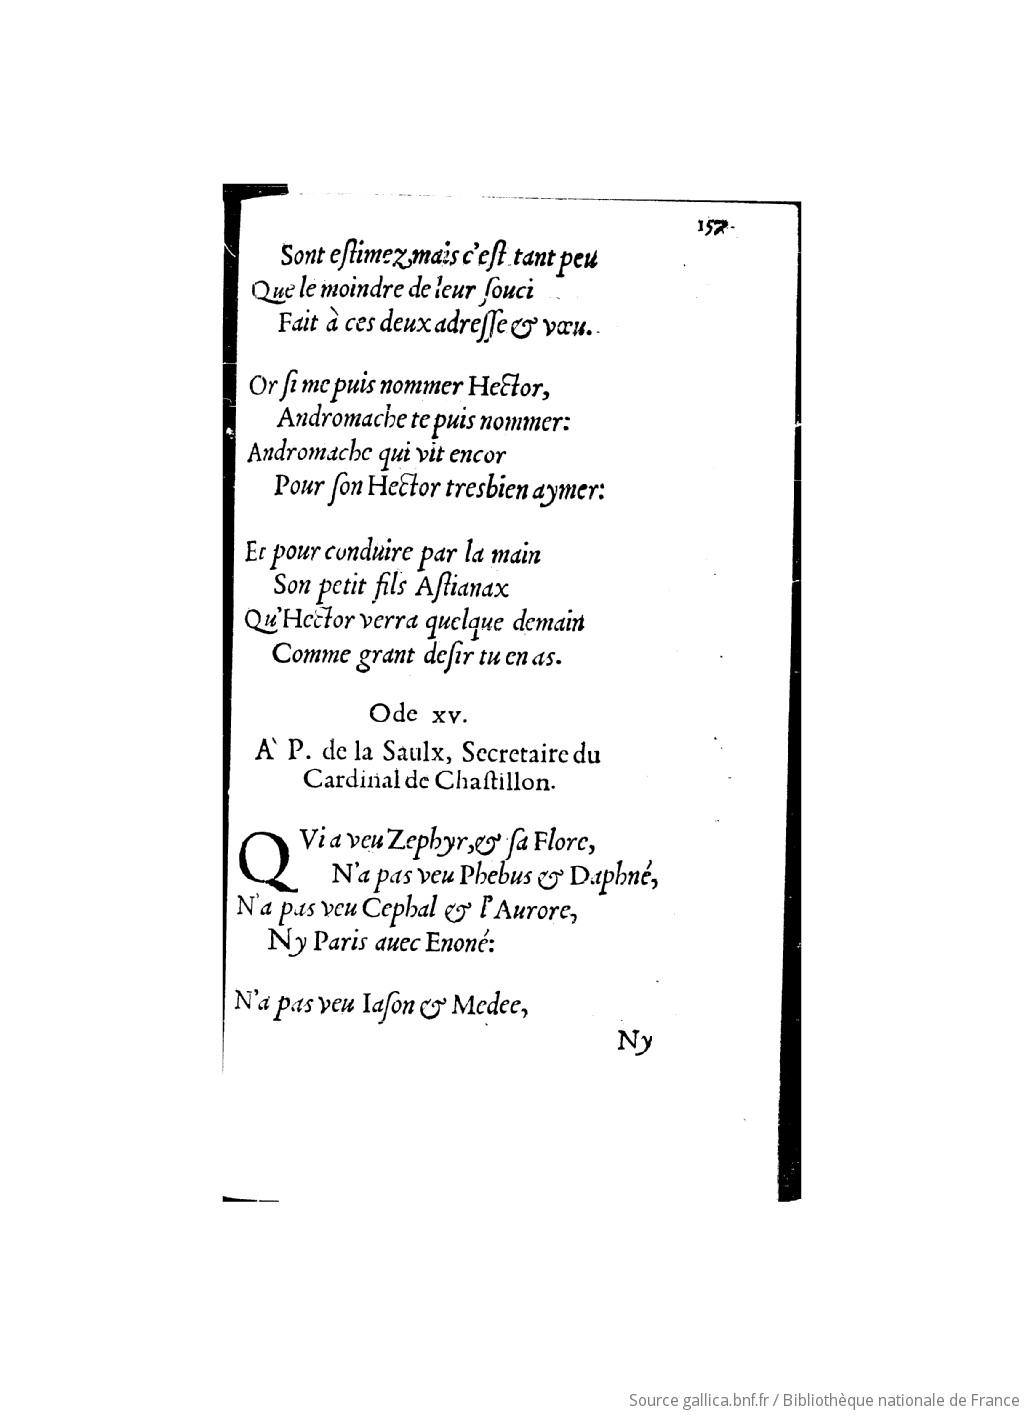 157.
Sont eſtimez, mais c'eſt tant peu
Que le moindre de leur ſouci
Fait à ces deux adreſſe & vœu.
Or ſi me puis nommer Hector,
Andromache te puis nommer:
Andromache qui vit encor
Pour ſon Hector tresbien aymer:
Et pour conduire par la main
Son petit fils Aſtianax
Qu'Hector verra quelque demain
Comme grant deſir tu en as.
Ode xv.
A` P. de la Saulx, Secretaire du
Cardinal de Chaſtillon.
QVi a veu Zephyr, & ſa Flore,
N'a pas veu Phebus & Daphné,
N'a pas veu Cephal & l'Aurore,
Ny Paris auec Enoné:
N'a pas veu Iaſon & Medee,
Ny
Source gallica.bnf.fr / Bibliothèque nationale de France